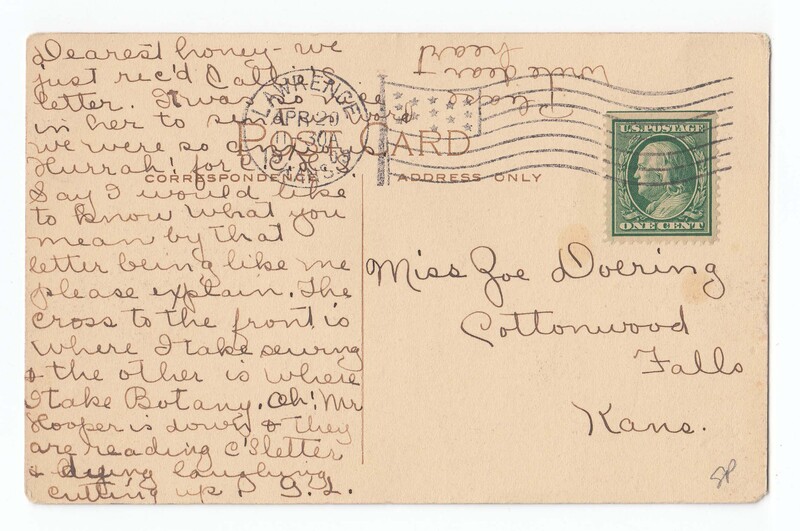 Dearest honey - we
just rec'd Callie's
letter. It was so
in her to
we were so anxious
Hurrah! for
Say I would like
to know what you
mean by that
letter being like me
please explain. The
cross to the front is
where I take sewing
& the other is where
I take Botany. Oh! Mr
Hooper is down & they
are reading C's letter
& dying laughing
cutting up. G.L.
Please
write dear
heart
LAWRENCE
APR 29
11 30
KANS
POST CARD
CORRESPONDENCE
ADDRESS ONLY
U.S. POSTAGE
ONE CENT
Miss Zoe Doering
Cottonwood
Falls
Kans.